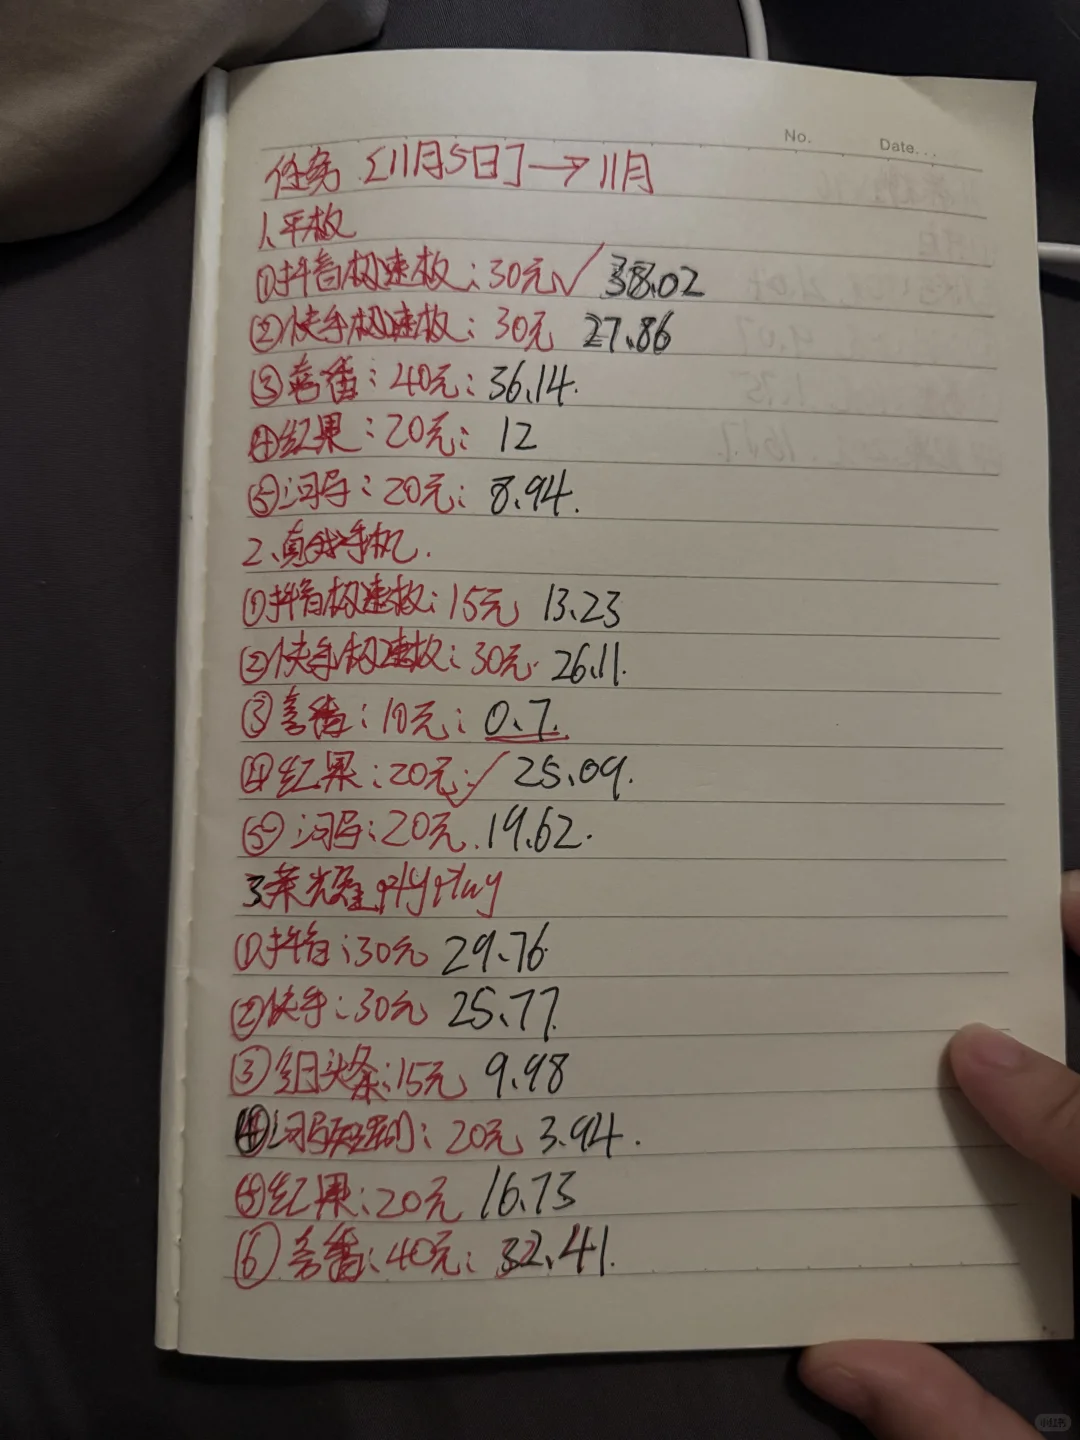 No. Date...
任务 [11月5日]→11月
1、平板
①抖音极速板：30元✓ 38.02
②快手极速板：30元 27.86
③喜番：40元：36.14.
④红果：20元：12
⑤河马：20元：8.94.
2、真我手机.
①抖音极速板：15元 13.23
②快手极速板：30元. 26.11.
③喜番：10元：0.7.
④红果：20元✓ 25.09.
⑤河马：20元.19.62.
3荣耀
①抖音：30元 29.76
②快手：30元 25.77.
③今日头条：15元 9.98
④河马短剧：20元 3.94.
⑤红果：20元 16.73
⑥喜番：40元：32.41.
小红书